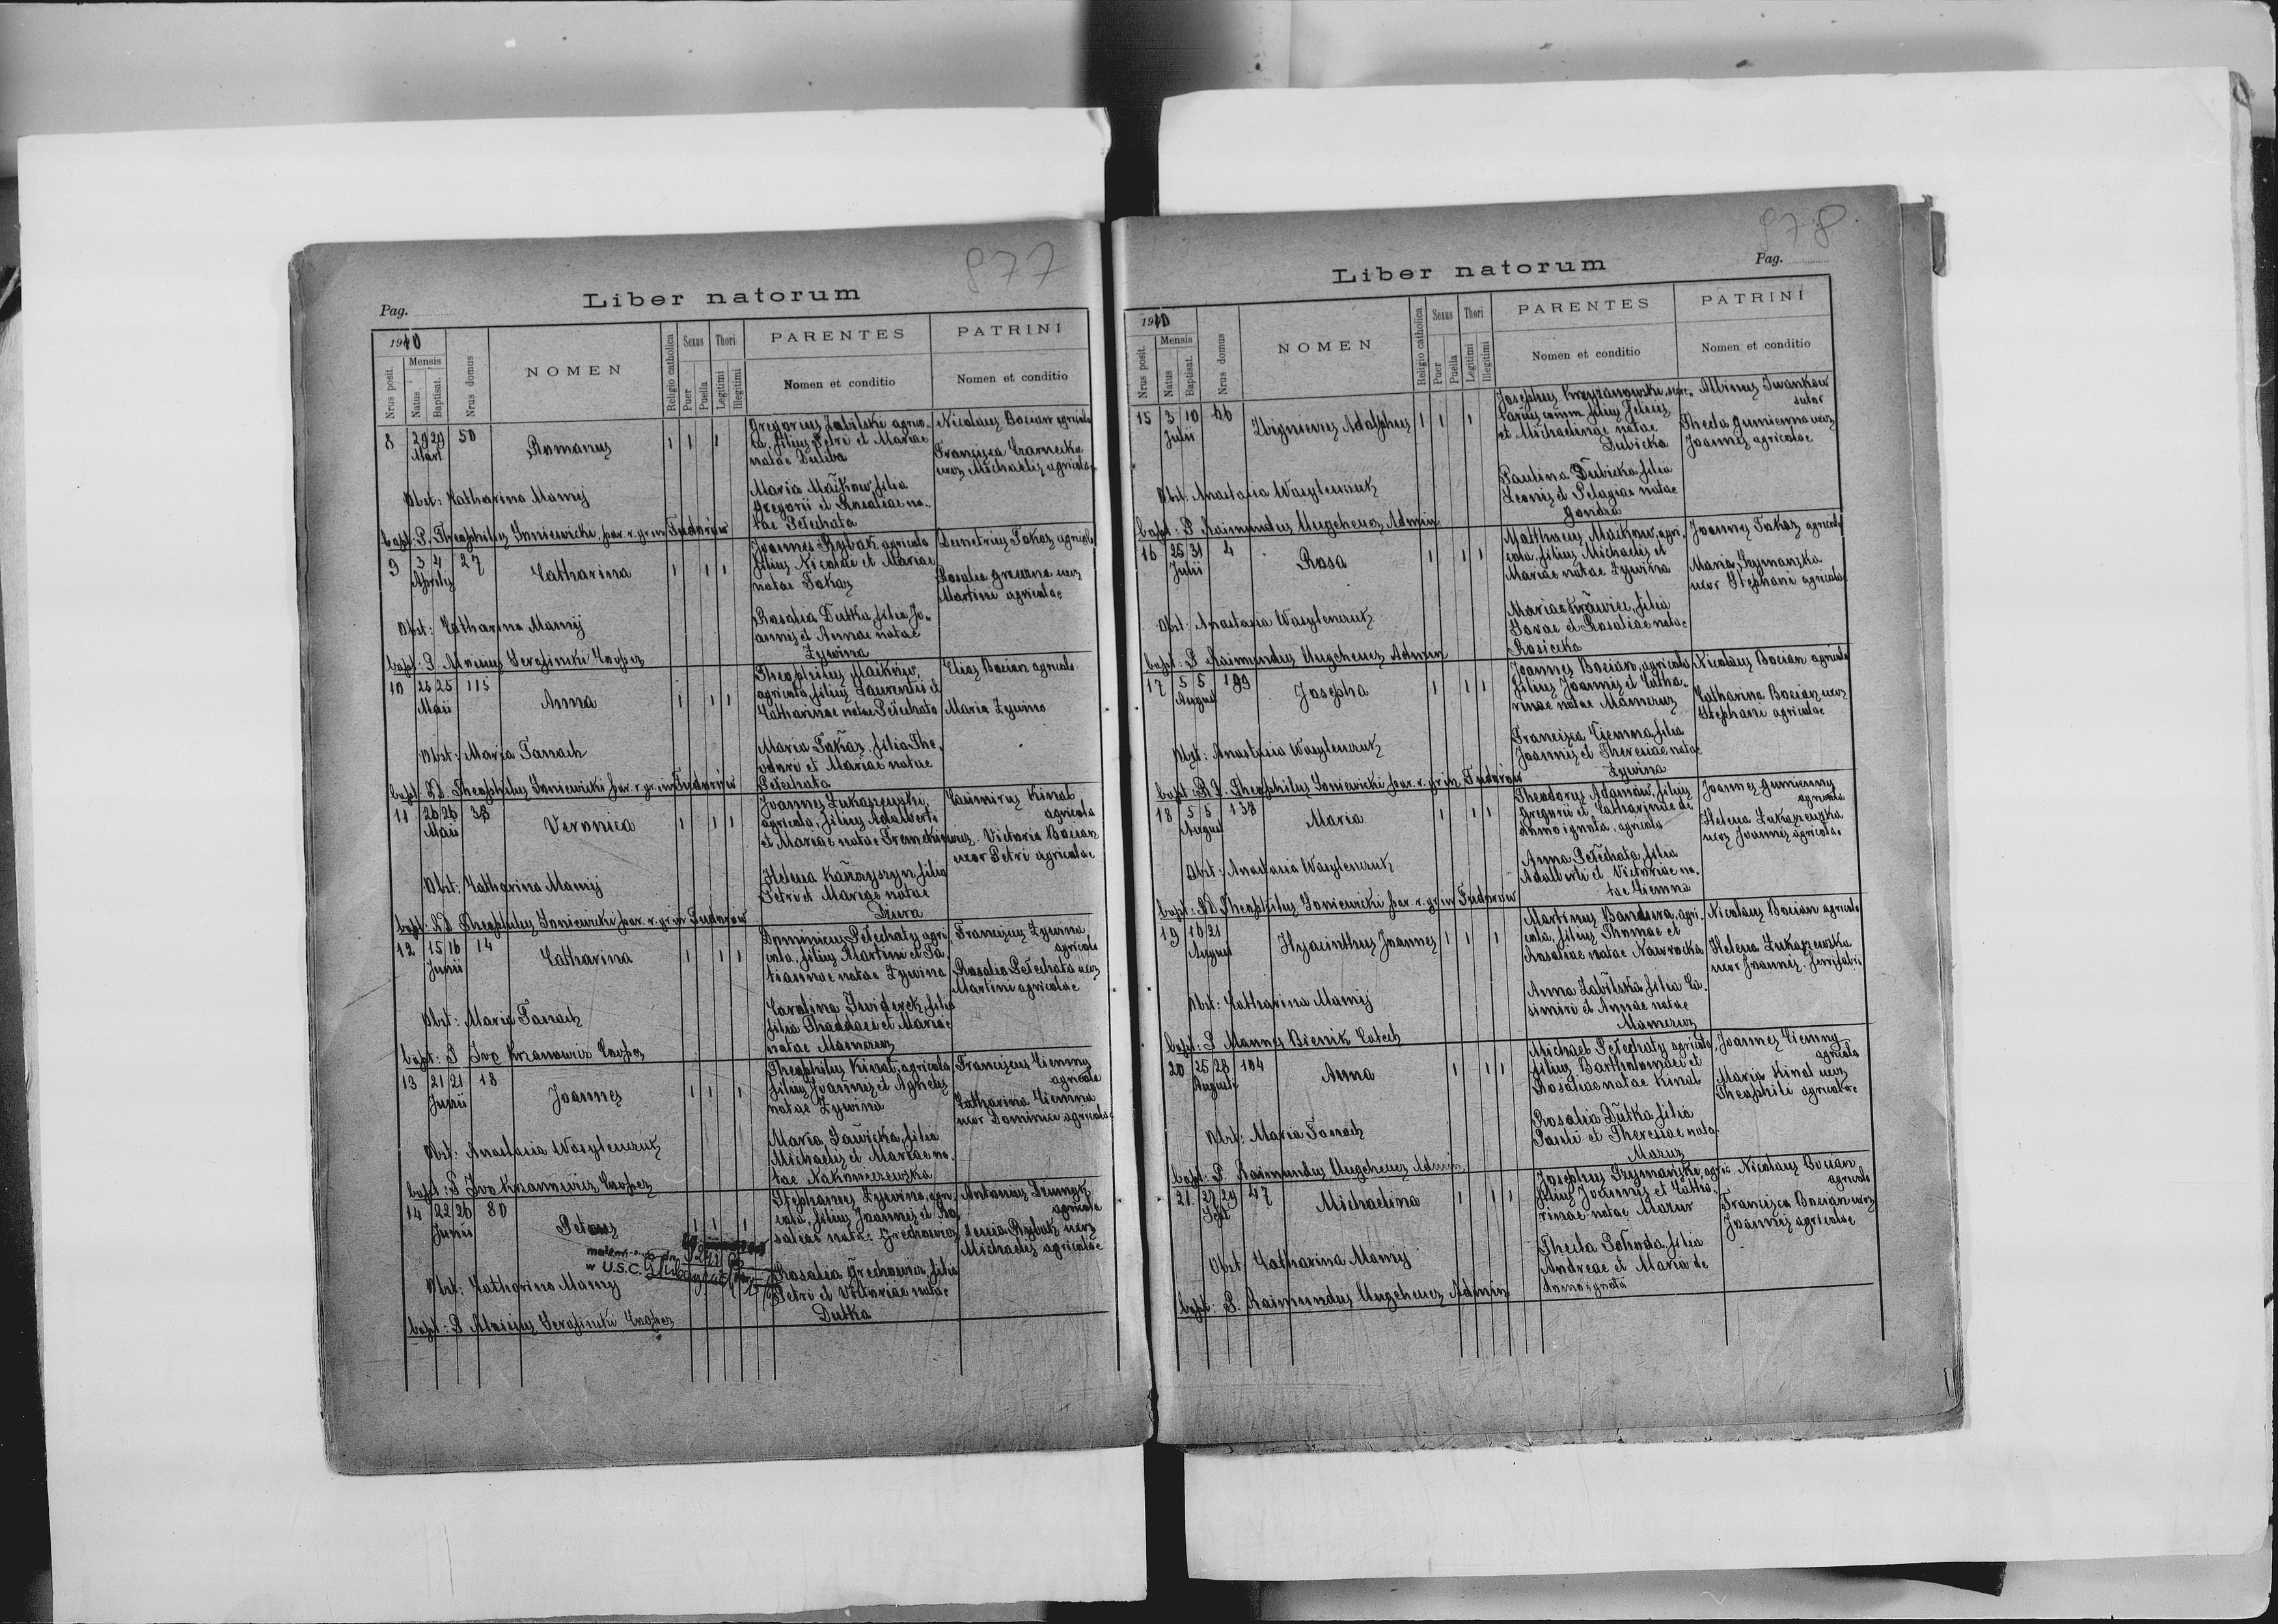 877
Pag.
Liber natorum
1910
Mensis
Nrus posit.
Natus
Baptisat.
Nrus domus
NOMEN
Religio catholica
Sexus
Puer
Puella
Thori
Legitimi
Illegitimi
PARENTES
Nomen et conditio
PATRINI
Nomen et conditio
8 29 29 50
Mart
Romanus
Gregorius Zabilski agrico-
la, filius Petri et Mariae
natae Duliba
Maria Maćkow filia
Gregorii et Rosaliae na-
tae Pełechata
Nicolaus Bocian agricola
Francisca Czarnecka
uxor Michaelis agricolae
Obst: Katharina Mamij
bapt: P. Theophilus Janiewicki, par. r. gr. in Tudorów
9 3 4 27
Aprilis
Catharina
Joannes Rybak agricola
filius Nicolai et Mariae
natae
Rosalia Dutka filia Jo-
annis et Annae natae
Żywina
Demetrius agricola
Rosalia uxor
Martini agricolae
Obst: Catharina Mamij
bapt: P. Serafinski Cooper
10 25 25 115
Maii
Anna
Theophilus Maćków,
agricola, filius Laurentii et
Catharinae natae Pełechata
Maria filia The-
odori et Mariae natae
Pełechata
Elias Bocian agricola
Maria Żywina
Obst: Maria Tanach
bapt. R.D. Theophilus Janiewicki par. r. gr. in Tudorów
11 26 26 38
Maii
Veronica
Joannes Łukaszewski,
agricola, filius Adalberti
et Mariae natae
Helena filia
Petri et Mariae natae
Dziura
Casimirus Kinal
agricola
Victoria Bocian
uxor Petri agricolae
Obst: Catharina Mamij
bapt: R.D. Theophilus Janiewicki par. r. gr. in Tudorów
12 15 16 14
Junii
Catharina
Dominicus Pełechaty agri-
cola, filius Martini et Ta-
tiannae natae Żywina
Carolina filia
filia Thaddaei et Mariae
natae Mamcruz
Franciscus Żywina,
agricola
Rosalia Pełechata uxor
Martini agricolae
Obst: Maria Tanach
bapt: P. Ivo Krzanowicz Cooper
13 21 21 18
Junii
Joannes
Theophilus Kinal, agricola
filius Joannis et Agnetis
natae Żywina
Maria Sawicka, filia
Michaelis et Mariae na-
tae Nakonieczewska
Franciscus Ciemny
agricola
Catharina Ciemna
uxor Dominici agricolae
Obst: Anastasia Wasylenczuk
bapt: P. Ivo Krzanowicz Cooper
14 22 26 80
Junii
Petrus
Stephanus Żywina, agri-
cola, filius Joannis et Ro-
saliae natae
Rosalia filia
Petri et Victoriae natae
Dutka
Antonius
agricola
Rybak uxor
Michaelis agricolae
w U.S.C.
Obst: Catharina Mamij
bapt: P. Serafinski Cooper
878
Pag.
Liber natorum
1910
Mensis
Nrus posit.
Natus
Baptisat.
Nrus domus
NOMEN
Religio catholica
Sexus
Puer
Puella
Thori
Legitimi
Illegitimi
PARENTES
Nomen et conditio
PATRINI
Nomen et conditio
15 3 10 66
Julii
Zbignievus Adolphus
Josephus Krzyżanowski,
comm. filius Felicis
et Michaelinae natae
Dubicka
Paulina Dubicka filia
Leonis et Pelagiae natae
Gondra
Albinus Iwanków
sutor
Thecla Gumienna uxor
Joannis agricolae
Obst. Anastasia Wasylenczuk
bapt: P. Raimundus Ungeheuer, Admin
16 25 31 4
Julii
Rosa
Matthaeus Maćkow, agri-
cola, filius Michaelis et
Mariae natae Żywina
Maria Krawiec, filia
Savae et Rosaliae natae
Rosicka
Joannes agricola
Maria Szymańska
uxor Stephani agricolae
Obst: Anastasia Wasylenczuk
bapt: P. Raimundus Ungeheuer Admin
17 5 5
August
Josepha
Joannes Bocian, agricola
filius Joannis et Catha-
rinae natae Mamcruz
Francisca Ciemna, filia
Joannis et Theresiae natae
Żywina
Nicolaus Bocian agricola
Catharina Bocian uxor
Stephani agricolae
Obst: Anastasia Wasylenczuk
bapt: R.D. Theophilus Janiewicki par. r. gr. in Tudorów
18 5 5 138
August
Maria
Theodorus Adamów, filius
Gregorii et Catharinae de
domo ignota, agricola
Anna Pełechata filia
Adalberti et Victoriae na-
tae Ciemna
Joannes Gumienny
agricola
Helena Łukaszewska
uxor Joannis agricolae
Obst: Anastasia Wasylenczuk
bapt: R.D. Theophilus Janiewicki par. r. gr. in Tudorów
19 16 21
August
Hyacinthus Joannes
Martinus Bandura, agri-
cola, filius Thomae et
Rosaliae natae Nawrocka
Anna Zabilska filia Ca-
simiri et Annae natae
Mamcruz
Nicolaus Bocian agricola
Helena Łukaszewska
uxor Joannis
Obst: Catharina Mamij
bapt: P. Mannes Biernik
20 25 28 104
Augusti
Anna
Michael Pełechaty agricola,
filius Bartholomaei et
Rosaliae natae Kinal
Rosalia Dutka filia
Pauli et Theresiae natae
Mazur
Joannes Ciemny
agricola
Maria Kinal uxor
Theophili agricolae
Obst: Maria Tanach
bapt: P. Raimundus Ungeheuer Admin
21. 27 29 47
Sept
Michaelina
Josephus Szymański, agric.
filius Joannis et Catha-
rinae natae Mazur
Thecla filia
Andreae et Maria de
domo ignota
Nicolaus Bocian
agricola
Francisca Bocian uxor
Joannis agricolae
Obst: Catharina Mamij
bapt: P. Raimundus Ungeheuer Admin